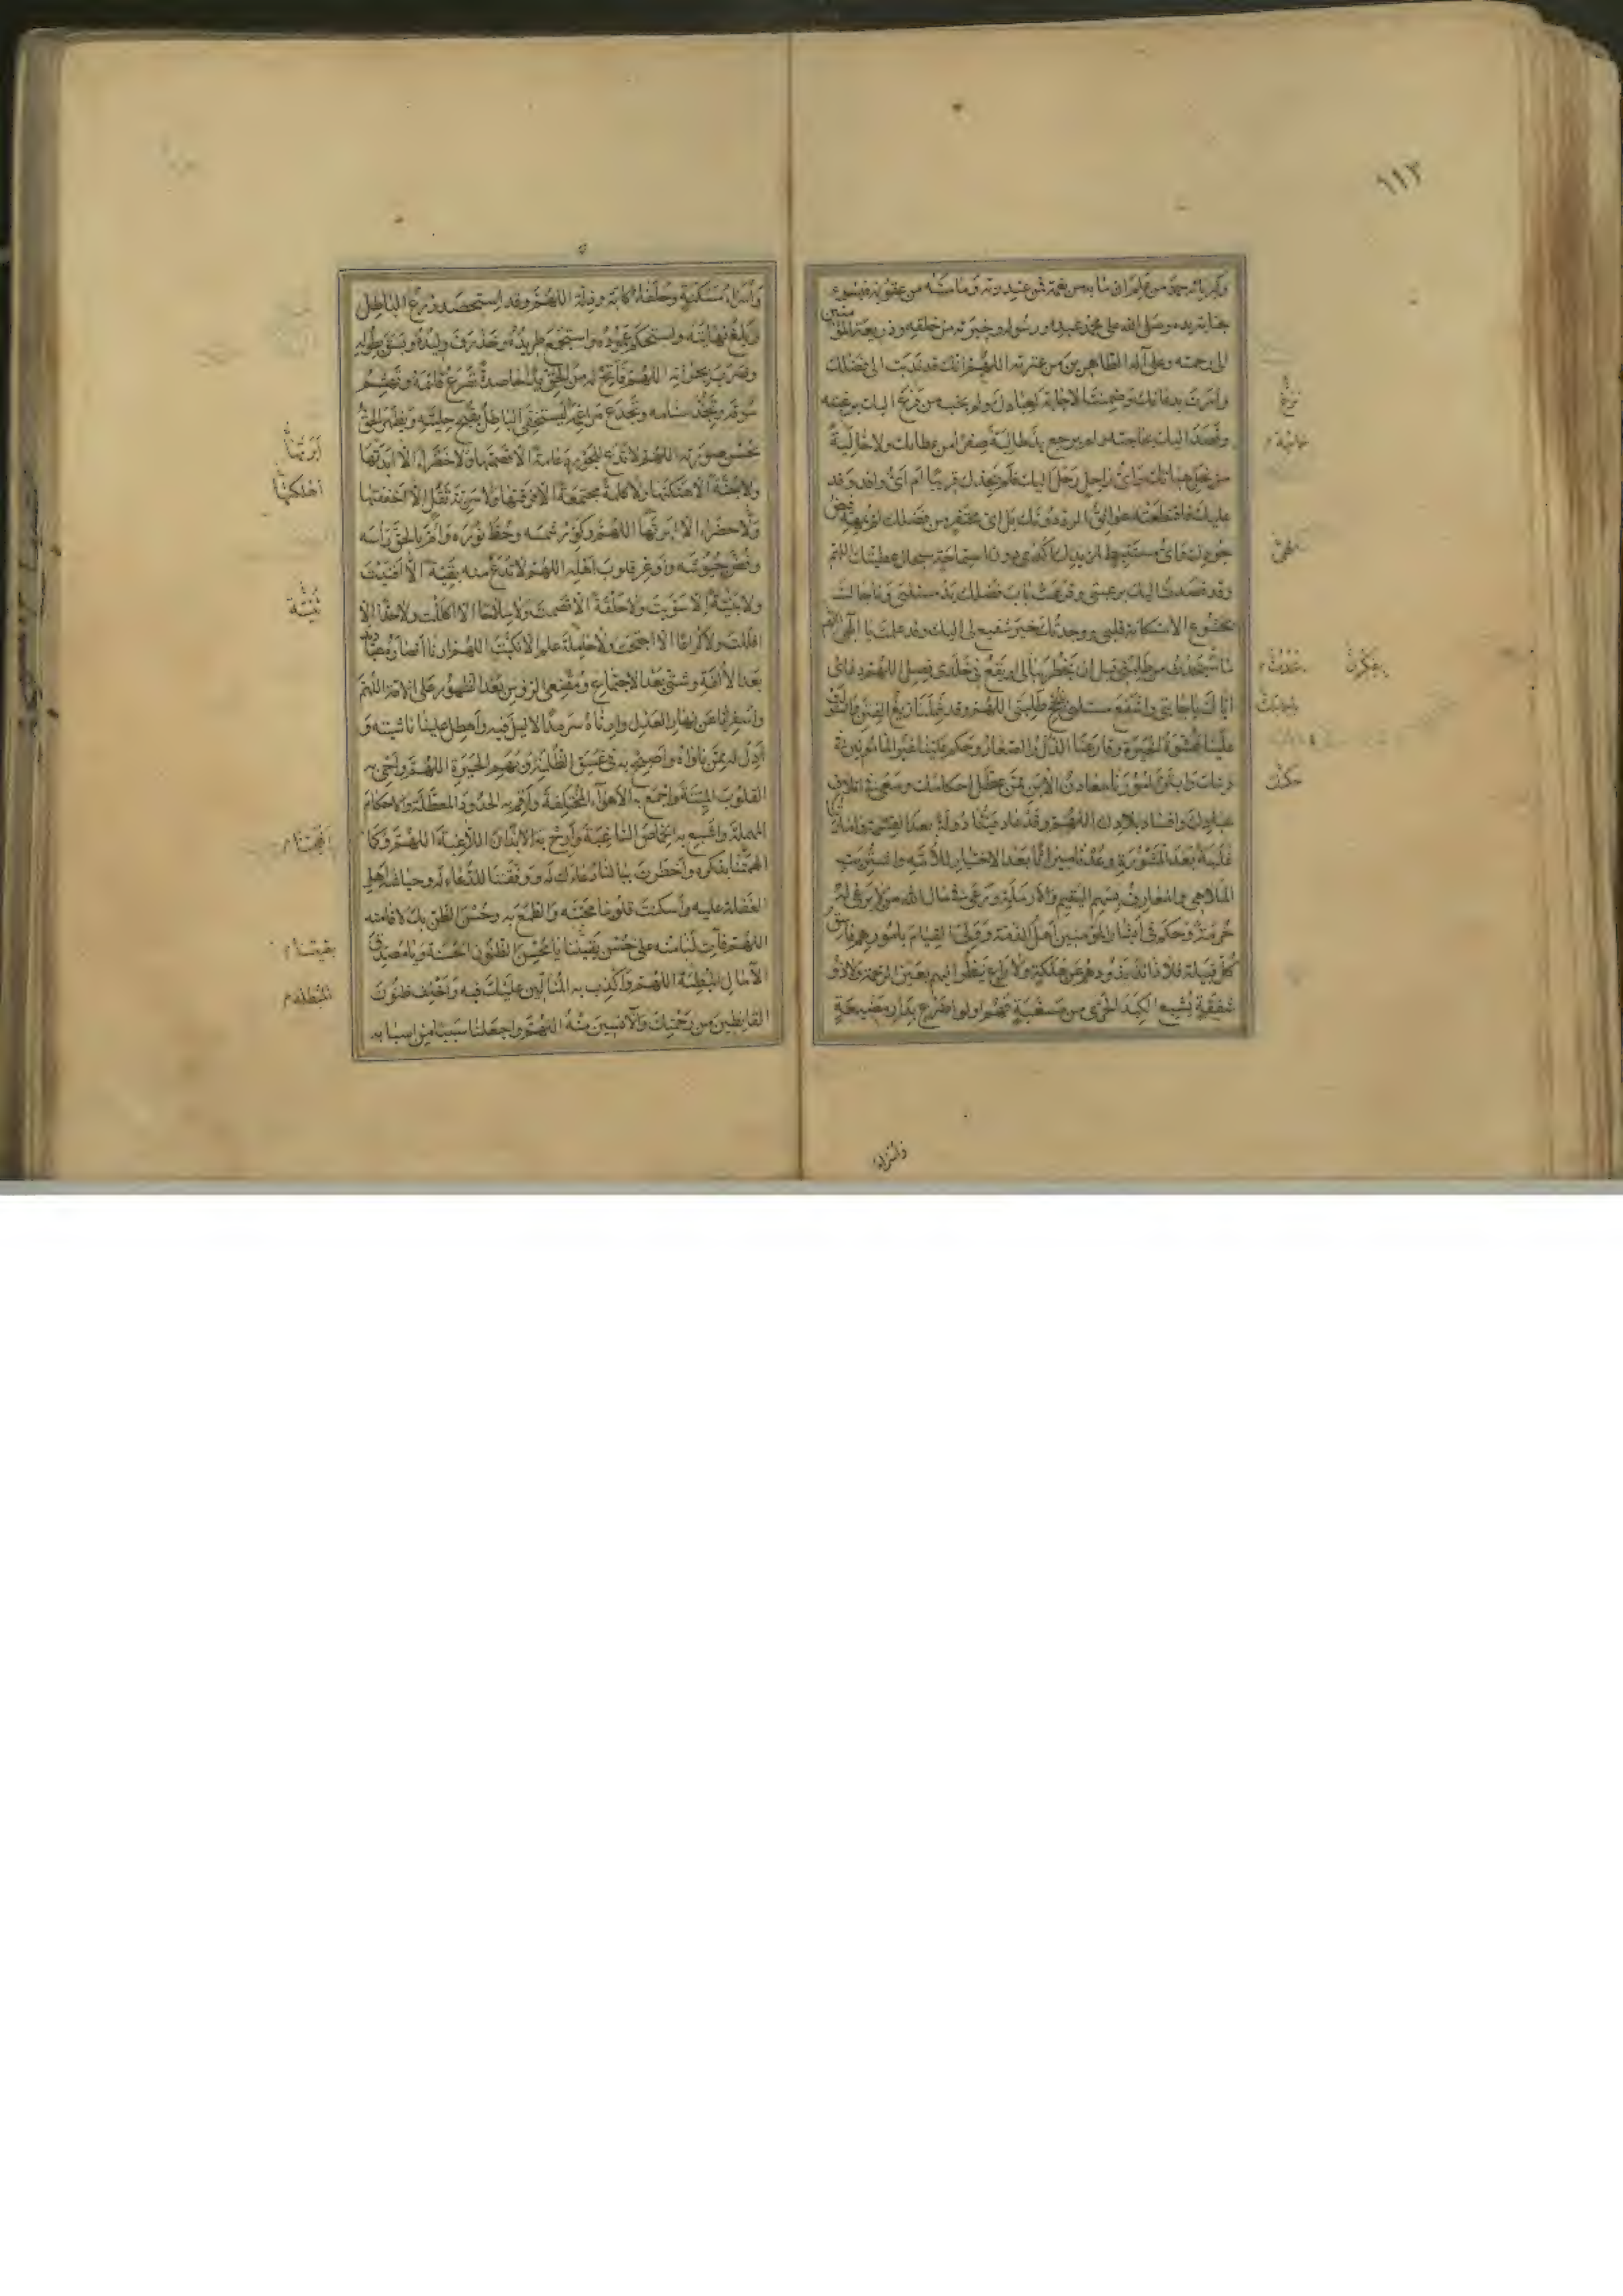 ١١٣
وكبريائه حمد من علم ان ما به من نعمة فمن عند ربه وما مسه من عقوبة فبسوء
جناية يده وصلى الله على محمد عبده ورسوله وخيرته من خلقه وذريعة المؤمنين
الى رحمته وعلى آله الطاهرين من عترته اللهم انك قد ندبت الى فضلك
وامرت بدعائك وضمنت الاجابة لعبادك ولم يخب من فزع اليك برغبته
وقصد اليك بحاجته ولم يرجع يد طالبة صفرا من عطائك ولا خالية
من نحل هباتك واي راحل رحل اليك فلم يجدك قريبا ام اي وافد وفد
عليك فاقتطعته عوائق الرد دونك بل اي محتفر من فضلك لم يمهه فيض
جودك واي مستنبط لمزيدك اكدى دون استماحة سجال عطيتك اللهم
وقد قصدت اليك برغبتي وقرعت باب فضلك يد مسئلتي وناجاك
بخشوع الاستكانة قلبي ووجدتك خير شفيع لي اليك وقد علمت يا الهي
من طلبتي قبل ان يخطر ببالي او يقع في خلدي فصل اللهم دعائي
اياك باجابتي واشفع مسئلتي بنجح طلبتي اللهم وقد شملنا زيغ الفتن
علينا غشوة الحيرة وقارعنا الذل والصغار وحكم علينا غير المأمونين في
دينك وابتز امورنا معادن الابن ممن عطل احكامك وسعى في اتلاف
عبادك وافساد بلادك اللهم وقد عاد فيئنا دولة بعد القسمة وامارتنا
غلبة بعد المشورة وعدنا ميراثا بعد الاختيار للامة واشتريت
الملاهي والمعازف بسهم اليتيم والارملة ورعى في مال الله من لا يرعى له
حرمة وحكم في ابشار المؤمنين اهل الذمة وولى القيام بامورهم فاسق
كل قبيلة فلا ذائد يذودهم عن هلكة ولا راع ينظر اليهم بعين الرحمة ولا ذو
شفقة يشبع الكبد الحرى من مسغبة فهم اولو اضرع بدار مضيعة
خائبة
حكمك
وأسراء
وأسراء مسكنة وحلفاء كآبة وذلة اللهم وقد استحصد زرع الباطل
وبلغ نهايته واستحكم عموده واستجمع طريده وخذرف وليده وبسق طوله
وضرب بجرانه اللهم فاتح له من الحق يدا حاصدة تصرع قائمه وتهشم
سوقه وتجذ سنامه وتجدع مراغمه ليستخفي الباطل بقبح حليته ويظهر الحق
بحسن صورته اللهم لا تدع للجور دعامة الا قصمتها ولا خضراء الا ابدتها
ولا جنة الا هتكتها ولا كلمة مجتمعة الا فرقتها ولا سرية ثقل الا خففتها
ولا خضراء الا ابرتها اللهم وكور شمسه وحط نوره وام بالحق رأسه
وفض جيوشه واوغر قلوب اهله اللهم لا تدع منه بقية الا افنيت
ولا بنية الا سويت ولا حلقة الا قصمت ولا سلاحا الا اكللت ولا حدا الا
افللت ولا كراعا الا اجتحت ولا حاملة علم الا نكست اللهم ارنا انصاره عباديد
بعد الالفة وشتى بعد الاجتماع ومقنعي الرؤس بعد الظهور على الامة اللهم
واسفر لنا عن نهار العدل وارناه سرمدا لا ليل فيه واهطل علينا ناشئته و
ادل له ممن ناواه واصبح به في غسق الظلمة وبهيم الحيرة اللهم واحي به
القلوب الميتة واجمع به الاهواء المختلفة واقم به الحدود المعطلة والاحكام
المهملة واشبع به الخماص الساغبة وارح به الابدان اللاغبة اللهم وكما
الهجتنا بذكره واخطرت ببالنا دعاءك له ووفقتنا للدعاء له وحياشة اهل
الغفلة عليه واسكنت قلوبنا محبته والطمع به وحسن الظن بك لاقامته
اللهم فآت لنا منه على حسن يقيننا يا محسن الظنون الحسنة ويا مصدق
الآمال المبطنة اللهم واكذب به المتالين عليك فيه واخلف ظنون
القانطين من رحمتك والآيسين منه اللهم واجعلنا سببا من اسبابه
ابرتها
اهلكتها
بنية
الهجتنا